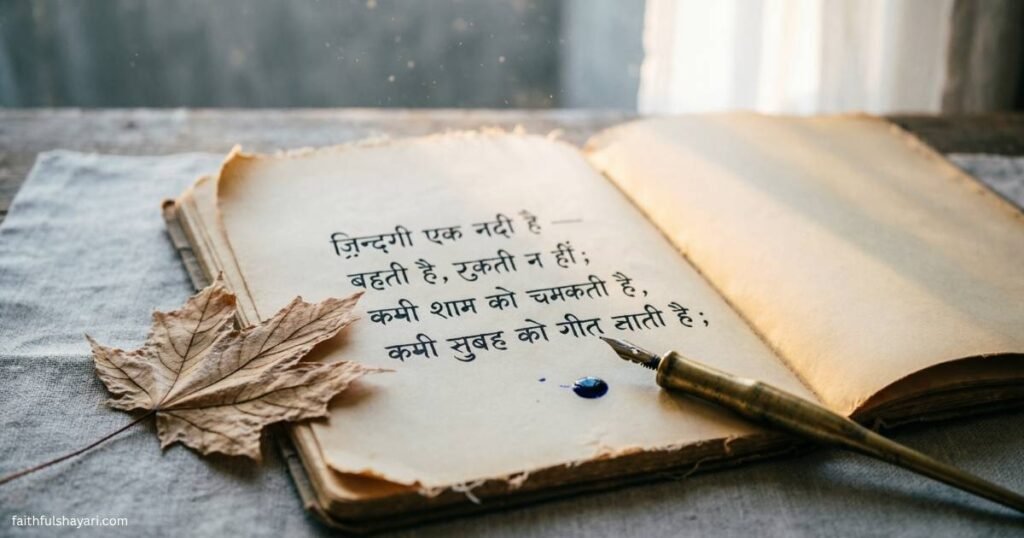 ज़िन्दगी एक नदी है —
बहती है, रुकती न हीं;
कमी शाम को चमकती है,
कमी सुबह को गीत साती है;
faithfulshayari.com